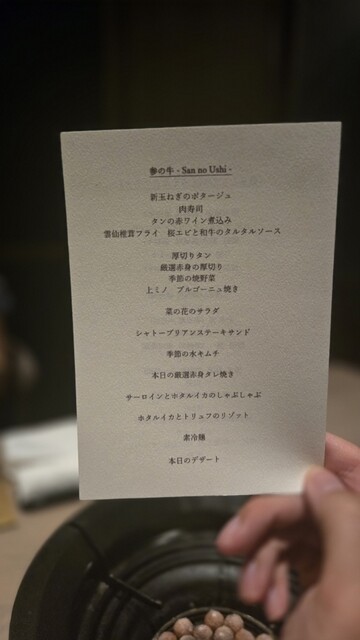 参の牛 - San no Ushi -
新玉ねぎのポタージュ
肉寿司
タンの赤ワイン煮込み
雲仙椎茸フライ 桜エビと和牛のタルタルソース
厚切りタン
厳選赤身の厚切り
季節の焼野菜
上ミノ ブルゴーニュ焼き
菜の花のサラダ
シャトーブリアンステーキサンド
季節の水キムチ
本日の厳選赤身タレ焼き
サーロインとホタルイカのしゃぶしゃぶ
ホタルイカとトリュフのリゾット
素冷麺
本日のデザート